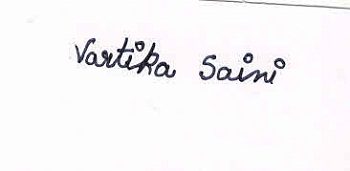 Vartika Saini